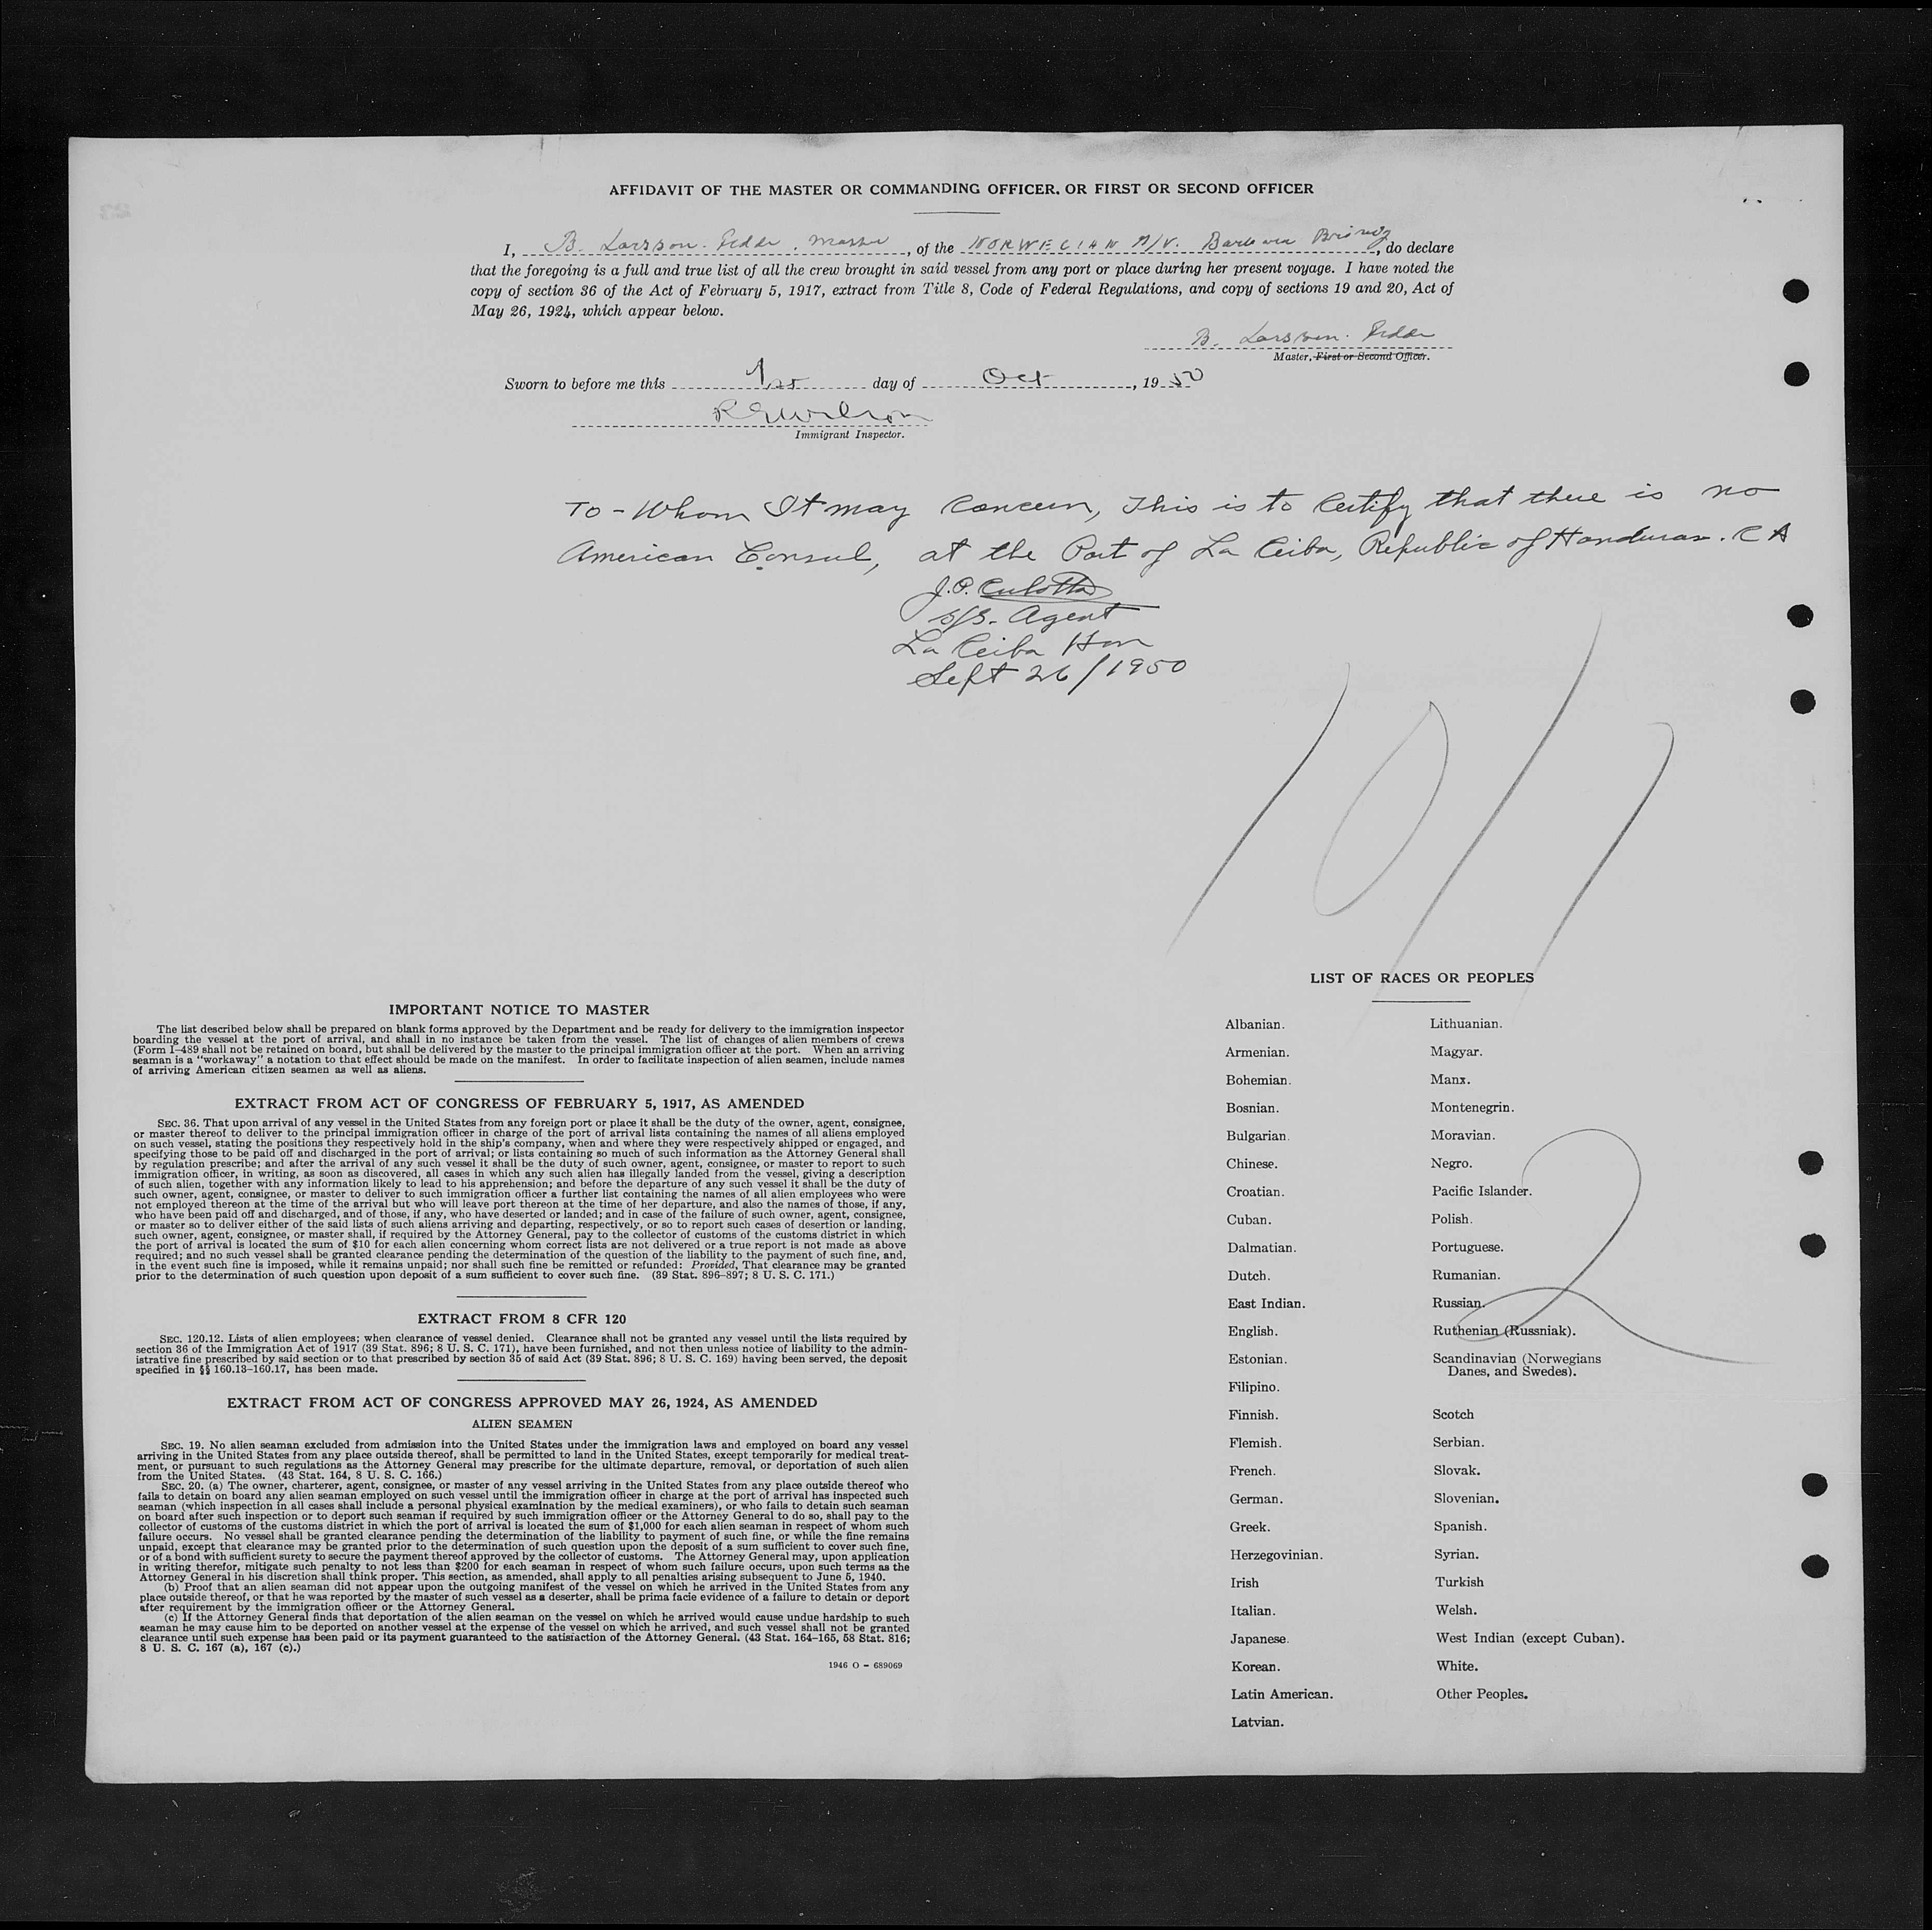 AFFIDAVIT OF THE MASTER OR COMMANDING OFFICER, OR FIRST OR SECOND OFFICER
I, B. Larsson. , Master, of the NORWEGIAN M/V. Barbara Brovig, do declare
that the foregoing is a full and true list of all the crew brought in said vessel from any port or place during her present voyage. I have noted the
copy of section 36 of the Act of February 5, 1917, extract from Title 8, Code of Federal Regulations, and copy of sections 19 and 20, Act of
May 26, 1924, which appear below.
B. Larsson.
Master, First or Second Officer.
Sworn to before me this 1st day of Oct, 19 50
R G Wilson
Immigrant Inspector.
To - Whom It may Concern, This is to Certify that there is no
American Consul, at the Port of La Ceiba, Republic of Honduras. C A
J.P. Culotta
S/S. Agent
La Ceiba Hon
Sept 26/1950
10/1
IMPORTANT NOTICE TO MASTER
The list described below shall be prepared on blank forms approved by the Department and be ready for delivery to the immigration inspector
boarding the vessel at the port of arrival, and shall in no instance be taken from the vessel. The list of changes of alien members of crews
(Form I-489 shall not be retained on board, but shall be delivered by the master to the principal immigration officer at the port. When an arriving
seaman is a "workaway" a notation to that effect should be made on the manifest. In order to facilitate inspection of alien seamen, include names
of arriving American citizen seamen as well as aliens.
EXTRACT FROM ACT OF CONGRESS OF FEBRUARY 5, 1917, AS AMENDED
SEC. 36. That upon arrival of any vessel in the United States from any foreign port or place it shall be the duty of the owner, agent, consignee,
or master thereof to deliver to the principal immigration officer in charge of the port of arrival lists containing the names of all aliens employed
on such vessel, stating the positions they respectively hold in the ship's company, when and where they were respectively shipped or engaged, and
specifying those to be paid off and discharged in the port of arrival; or lists containing so much of such information as the Attorney General shall
by regulation prescribe; and after the arrival of any such vessel it shall be the duty of such owner, agent, consignee, or master to report to such
immigration officer, in writing, as soon as discovered, all cases in which any such alien has illegally landed from the vessel, giving a description
of such alien, together with any information likely to lead to his apprehension; and before the departure of any such vessel it shall be the duty of
such owner, agent, consignee, or master to deliver to such immigration officer a further list containing the names of all alien employees who were
not employed thereon at the time of the arrival but who will leave port thereon at the time of her departure, and also the names of those, if any,
who have been paid off and discharged, and of those, if any, who have deserted or landed; and in case of the failure of such owner, agent, consignee,
or master so to deliver either of the said lists of such aliens arriving and departing, respectively, or so to report such cases of desertion or landing,
such owner, agent, consignee, or master shall, if required by the Attorney General, pay to the collector of customs of the customs district in which
the port of arrival is located the sum of $10 for each alien concerning whom correct lists are not delivered or a true report is not made as above
required; and no such vessel shall be granted clearance pending the determination of the question of the liability to the payment of such fine, and,
in the event such fine is imposed, while it remains unpaid; nor shall such fine be remitted or refunded: Provided, That clearance may be granted
prior to the determination of such question upon deposit of a sum sufficient to cover such fine. (39 Stat. 896-897; 8 U. S. C. 171.)
EXTRACT FROM 8 CFR 120
SEC. 120.12. Lists of alien employees; when clearance of vessel denied. Clearance shall not be granted any vessel until the lists required by
section 36 of the Immigration Act of 1917 (39 Stat. 896; 8 U. S. C. 171), have been furnished, and not then unless notice of liability to the admin-
istrative fine prescribed by said section or to that prescribed by section 35 of said Act (39 Stat. 896; 8 U. S. C. 169) having been served, the deposit
specified in §§ 160.13-160.17, has been made.
EXTRACT FROM ACT OF CONGRESS APPROVED MAY 26, 1924, AS AMENDED
ALIEN SEAMEN
SEC. 19. No alien seaman excluded from admission into the United States under the immigration laws and employed on board any vessel
arriving in the United States from any place outside thereof, shall be permitted to land in the United States, except temporarily for medical treat-
ment, or pursuant to such regulations as the Attorney General may prescribe for the ultimate departure, removal, or deportation of such alien
from the United States. (43 Stat. 164, 8 U. S. C. 166.)
SEC. 20. (a) The owner, charterer, agent, consignee, or master of any vessel arriving in the United States from any place outside thereof who
fails to detain on board any alien seaman employed on such vessel until the immigration officer in charge at the port of arrival has inspected such
seaman (which inspection in all cases shall include a personal physical examination by the medical examiners), or who fails to detain such seaman
on board after such inspection or to deport such seaman if required by such immigration officer or the Attorney General to do so, shall pay to the
collector of customs of the customs district in which the port of arrival is located the sum of $1,000 for each alien seaman in respect of whom such
failure occurs. No vessel shall be granted clearance pending the determination of the liability to payment of such fine, or while the fine remains
unpaid, except that clearance may be granted prior to the determination of such question upon the deposit of a sum sufficient to cover such fine,
or of a bond with sufficient surety to secure the payment thereof approved by the collector of customs. The Attorney General may, upon application
in writing therefor, mitigate such penalty to not less than $200 for each seaman in respect of whom such failure occurs, upon such terms as the
Attorney General in his discretion shall think proper. This section, as amended, shall apply to all penalties arising subsequent to June 5, 1940.
(b) Proof that an alien seaman did not appear upon the outgoing manifest of the vessel on which he arrived in the United States from any
place outside thereof, or that he was reported by the master of such vessel as a deserter, shall be prima facie evidence of a failure to detain or deport
after requirement by the immigration officer or the Attorney General.
(c) If the Attorney General finds that deportation of the alien seaman on the vessel on which he arrived would cause undue hardship to such
seaman he may cause him to be deported on another vessel at the expense of the vessel on which he arrived, and such vessel shall not be granted
clearance until such expense has been paid or its payment guaranteed to the satisfaction of the Attorney General. (43 Stat. 164-165, 58 Stat. 816;
8 U. S. C. 167 (a), 167 (c).)
1946 O - 689069
LIST OF RACES OR PEOPLES
Albanian.
Armenian.
Bohemian.
Bosnian.
Bulgarian.
Chinese.
Croatian.
Cuban.
Dalmatian.
Dutch.
East Indian.
English.
Estonian.
Filipino.
Finnish.
Flemish.
French.
German.
Greek.
Herzegovinian.
Irish
Italian.
Japanese.
Korean.
Latin American.
Latvian.
Lithuanian.
Magyar.
Manx.
Montenegrin.
Moravian.
Negro.
Pacific Islander.
Polish.
Portuguese.
Rumanian.
Russian.
Ruthenian (Russniak).
Scandinavian (Norwegians
Danes, and Swedes).
Scotch
Serbian.
Slovak.
Slovenian.
Spanish.
Syrian.
Turkish
Welsh.
West Indian (except Cuban).
White.
Other Peoples.
2